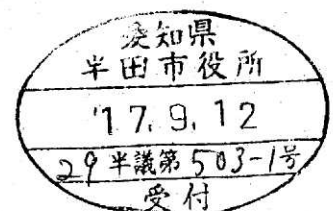 愛知県
半田市役所
'17.9.12
29半議第503-1号
受付